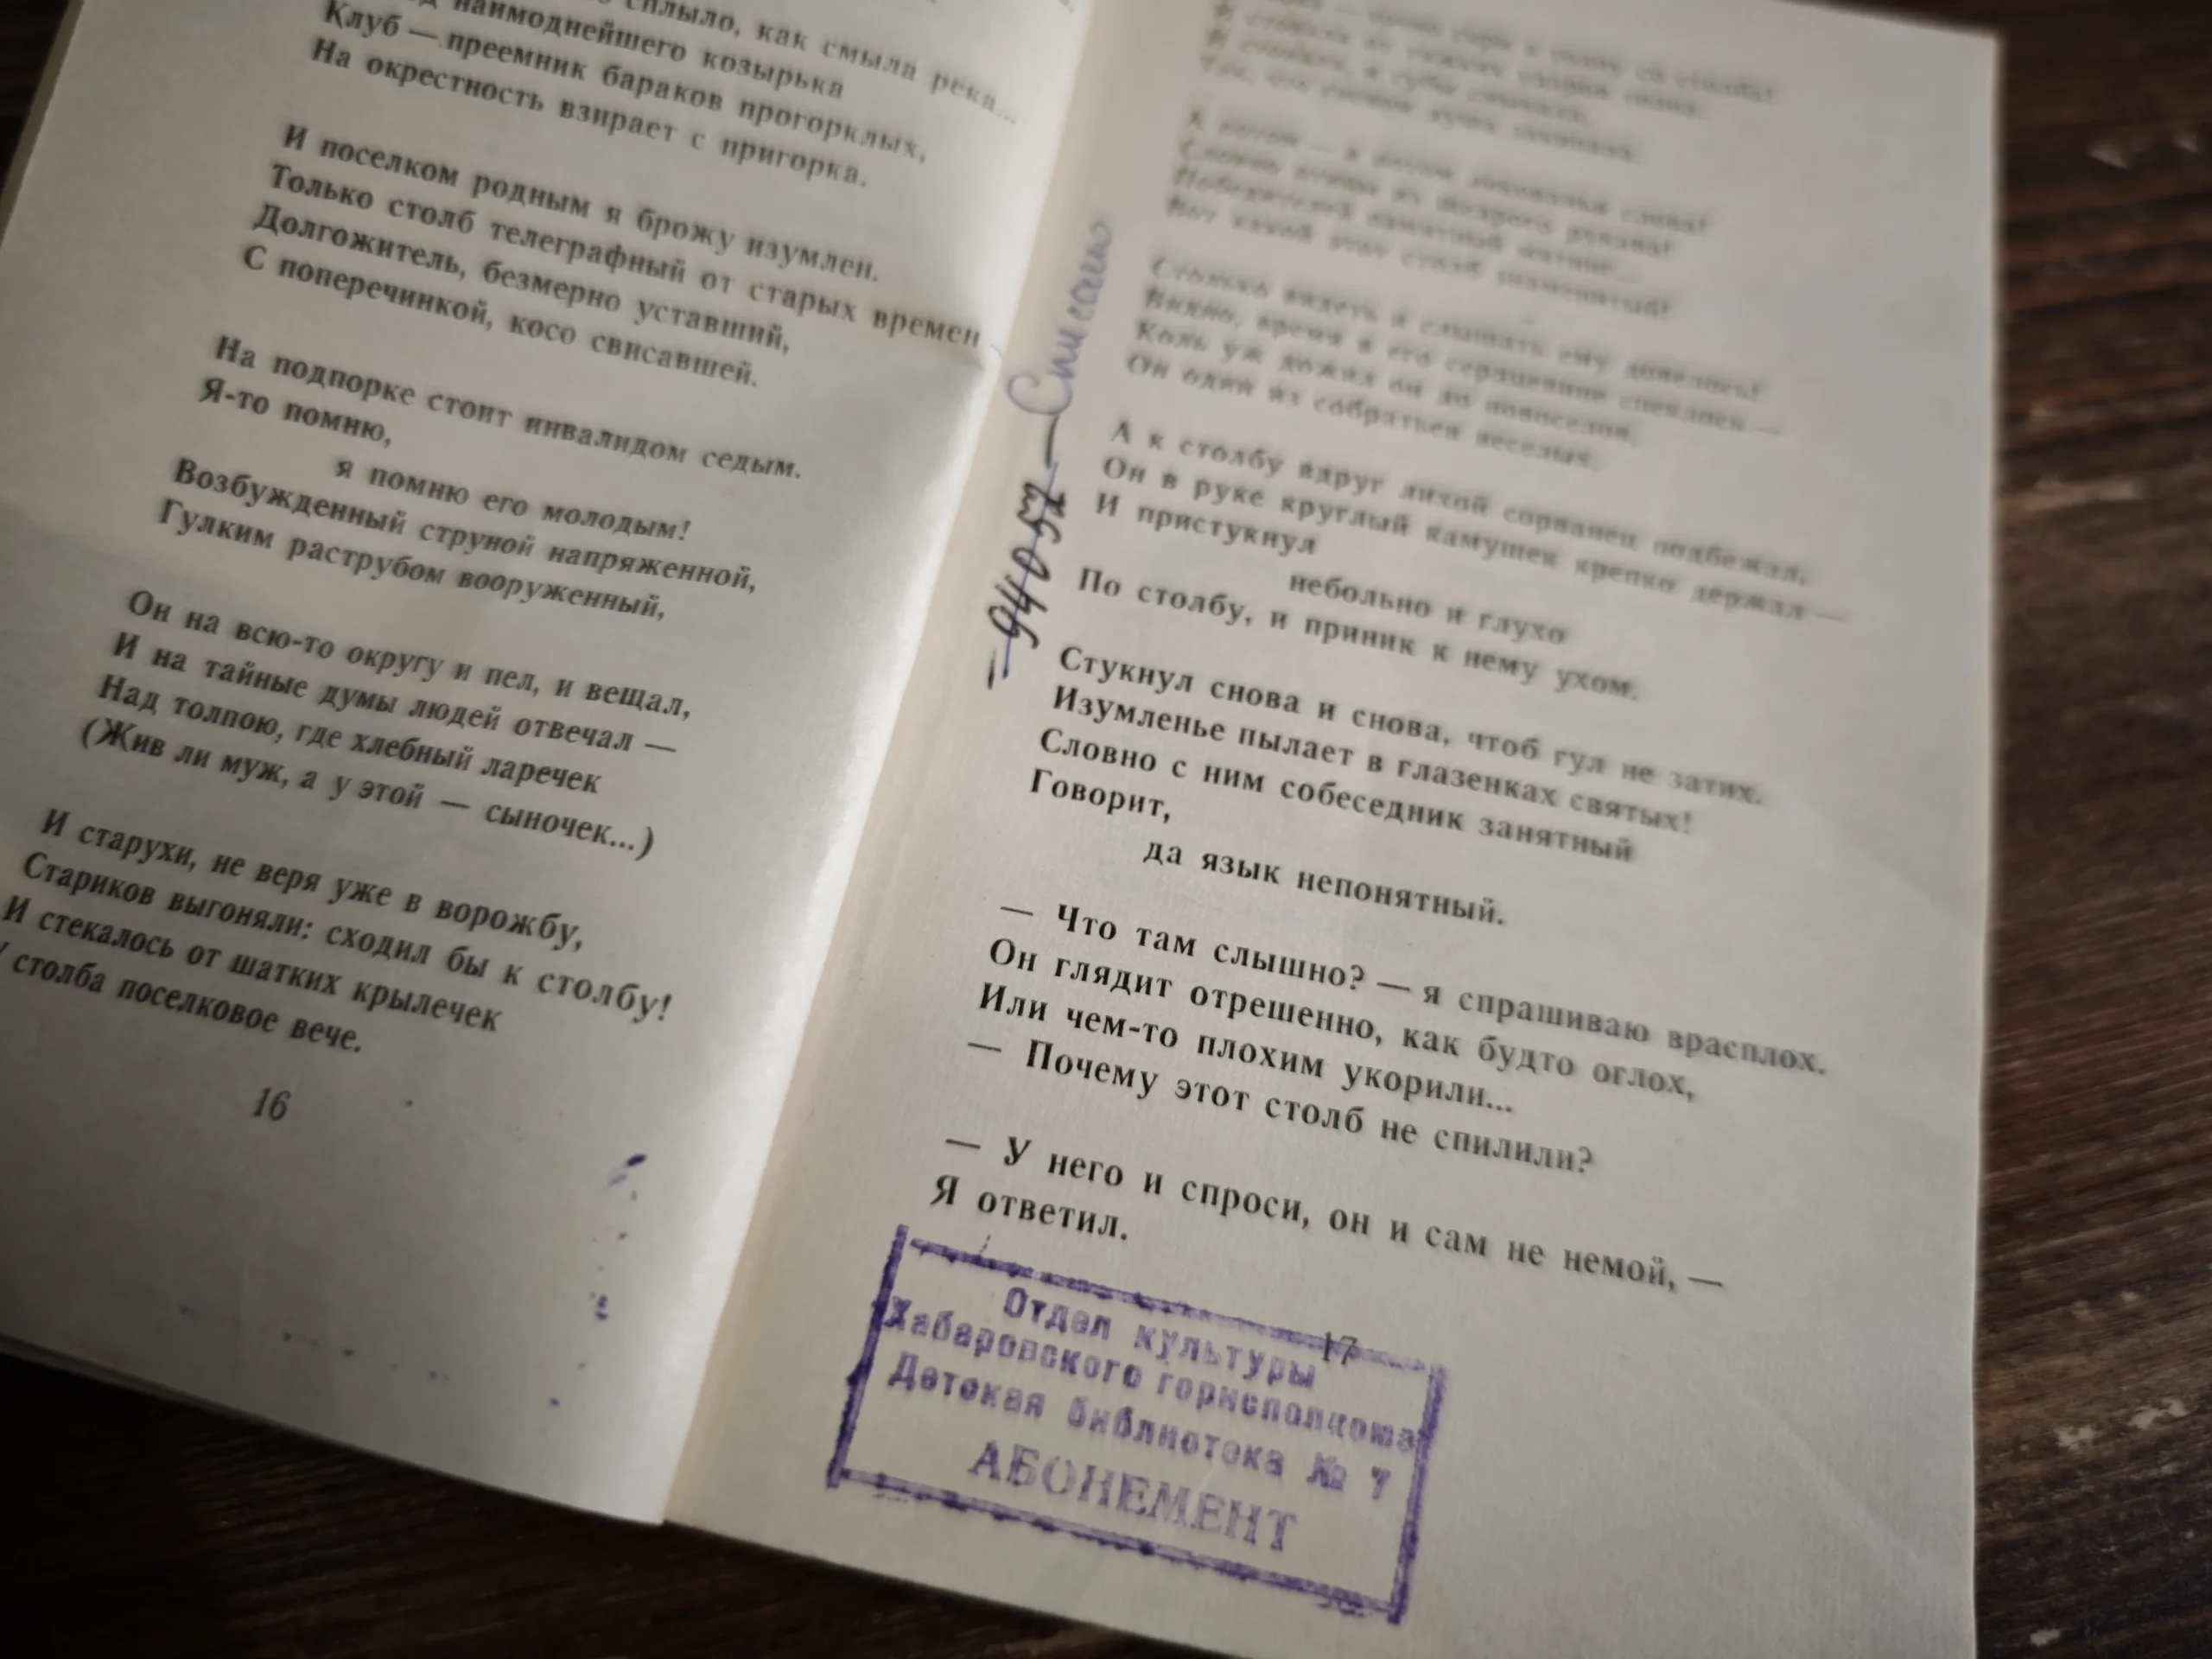 сплыло, как смыла река...
наимоднейшего козырька
Клуб — преемник бараков прогорклых,
На окрестность взирает с пригорка.
И поселком родным я брожу изумлен.
Только столб телеграфный от старых времен
Долгожитель, безмерно уставший,
С поперечинкой, косо свисавшей.
На подпорке стоит инвалидом седым.
Я-то помню,
я помню его молодым!
Возбужденный струной напряженной,
Гулким раструбом вооруженный,
Он на всю-то округу и пел, и вещал,
И на тайные думы людей отвечал —
Над толпою, где хлебный ларечек
(Жив ли муж, а у этой — сыночек...)
И старухи, не веря уже в ворожбу,
Стариков выгоняли: сходил бы к столбу!
И стекалось от шатких крылечек
У столба поселковое вече.
16
— 944057 — Списано
А потом — а потом
Словно птицы из щедрого рукава!
Вот какой этот столб знаменитый!
Столько видеть и слышать ему довелось!
Видно, время в его сердцевине спеклось —
Коль уж дожил он до новоселов,
Он один из собратьев веселых.
А к столбу вдруг лихой сорванец подбежал,
Он в руке круглый камушек крепко держал —
И пристукнул
небольно и глухо
По столбу, и приник к нему ухом.
Стукнул снова и снова, чтоб гул не затих.
Изумленье пылает в глазенках святых!
Словно с ним собеседник занятный
Говорит,
да язык непонятный.
— Что там слышно? — я спрашиваю врасплох.
Он глядит отрешенно, как будто оглох,
Или чем-то плохим укорили...
— Почему этот столб не спилили?
— У него и спроси, он и сам не немой, —
Я ответил.
17
Отдел культуры
Хабаровского горисполкома
Детская библиотека № 7
АБОНЕМЕНТ